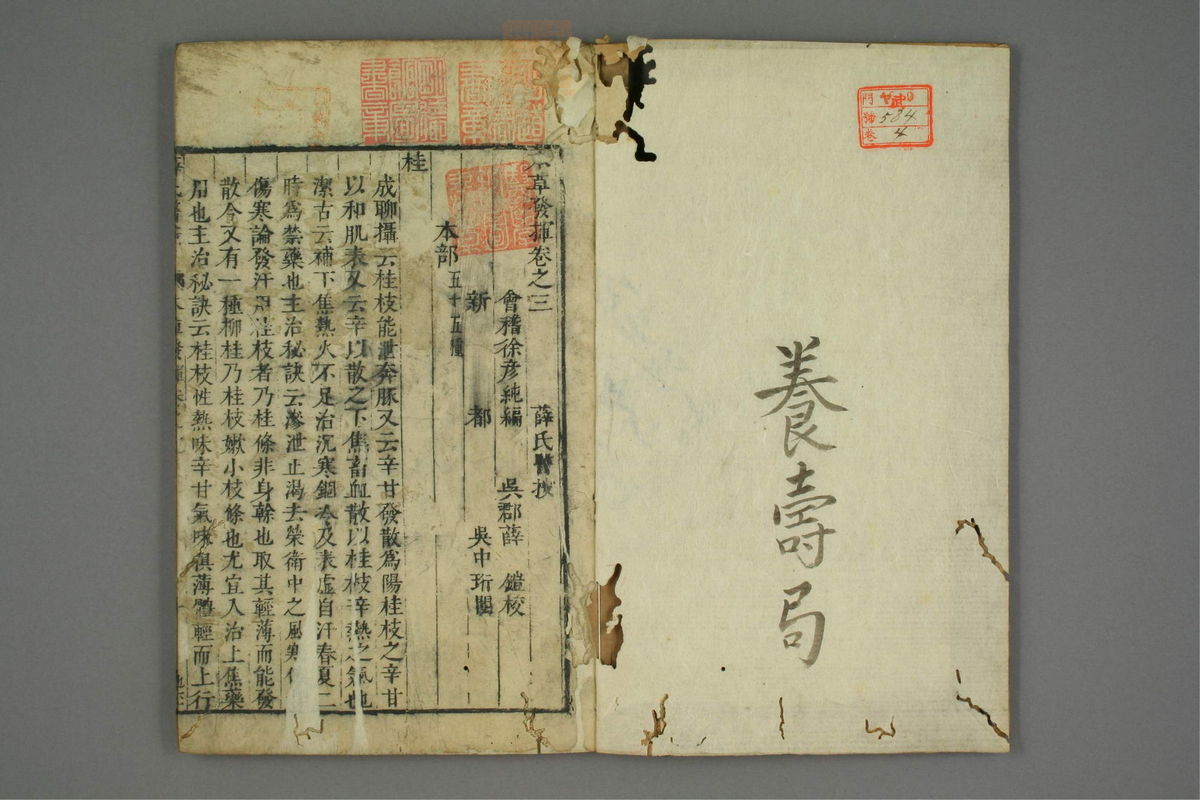 養壽局
門
号 584
巻 4
本草發揮卷之三 薛氏醫按
會稽徐彦純編 吳郡薛 鎧校
新 都 吳中珩閱
本部五十五種
桂
成聊攝云桂枝能泄奔豚又云辛甘發散爲陽桂枝之辛甘
以和肌表又云辛以散之下焦畜血散以桂枝辛熱之氣也
潔古云補下焦熱火不足治沉寒錮冷及表虛自汗春夏二
時爲禁藥也主治秘訣云滲泄止渴去榮衛中之風寒仲
傷寒論發汗用桂枝者乃桂條非身幹也取其輕薄而能發
散今又有一種柳桂乃桂枝嫩小枝條也尤宜入治上焦藥
用也主治秘訣云桂枝性熱味辛甘氣味俱薄體輕而上行